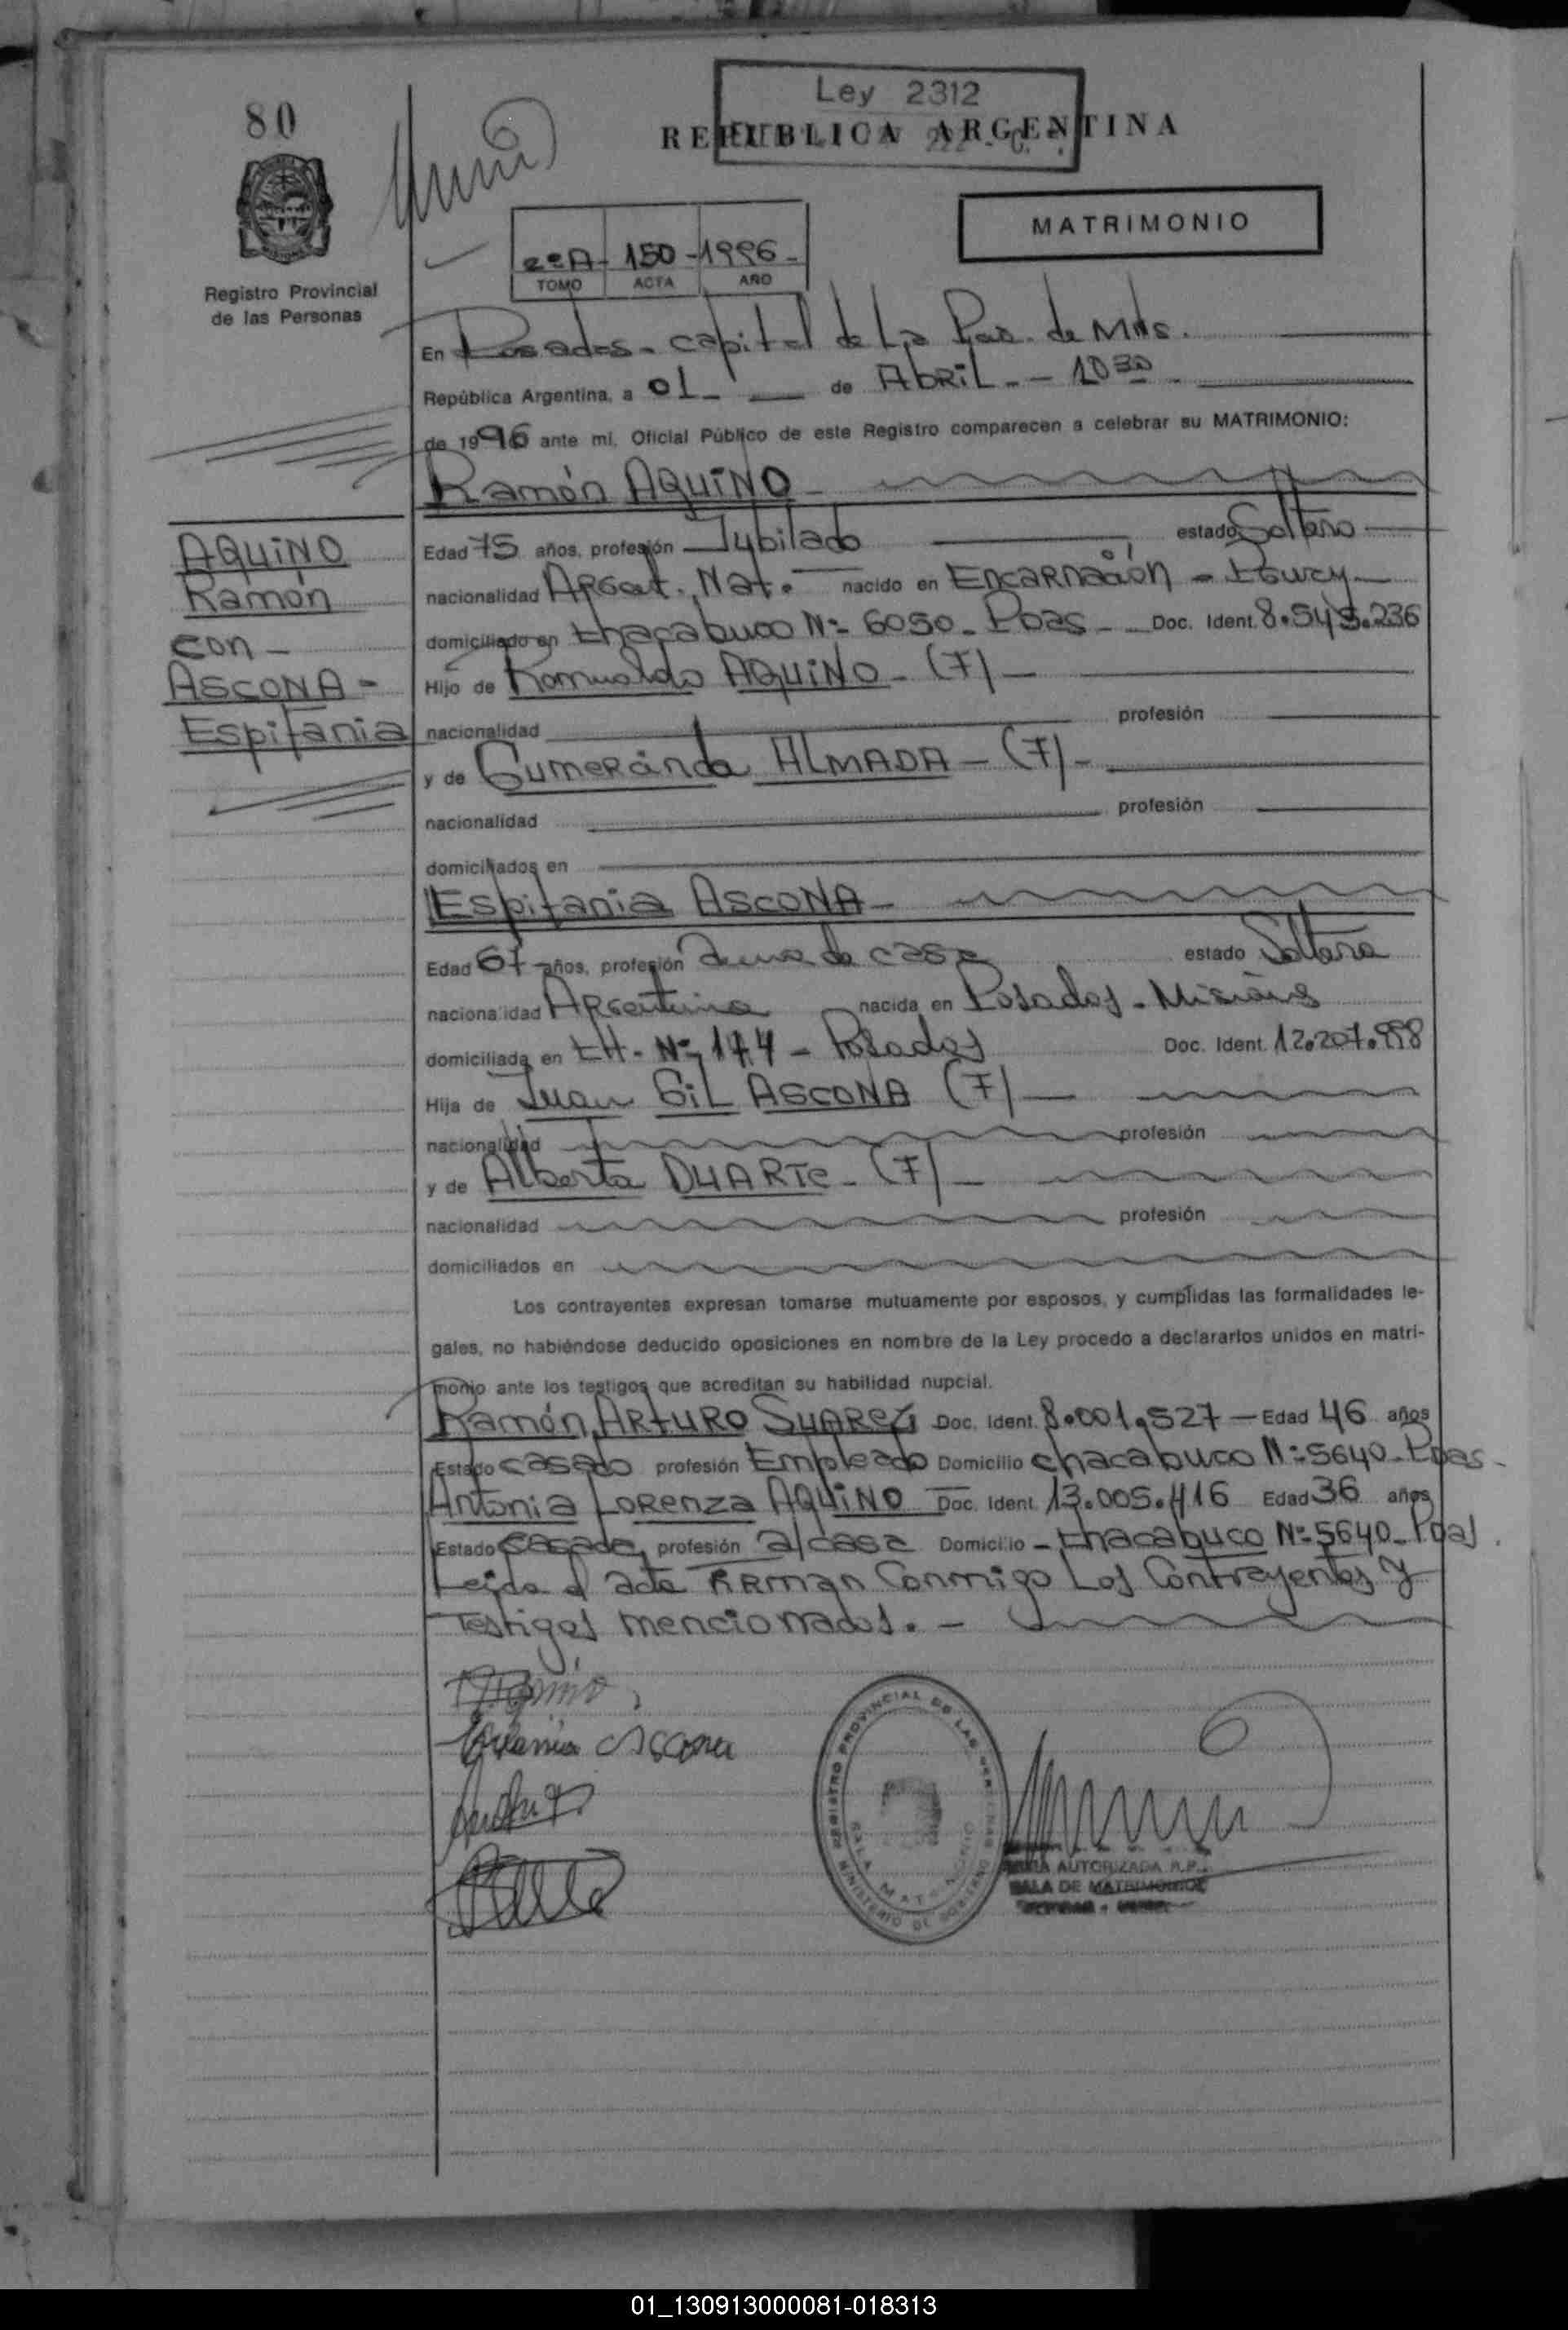 80
Ley 2312
REPUBLICA ARGENTINA
MATRIMONIO
2º A - 150 - 1996 -
TOMO ACTA AÑO
Registro Provincial
de las Personas
En Posadas - capital de La Pcia. de Mnes.
República Argentina, a 01 - de ABRIL - - 10 30 -
de 1996 ante mí, Oficial Público de este Registro comparecen a celebrar su MATRIMONIO:
Ramón AQUINO -
AQUINO
Ramón
con -
ASCONA -
Espifania
Edad 75 años, profesión Jubilado estado Soltero
nacionalidad Argent. Nat. nacido en Encarnación -
domiciliado en Chacabuco Nº 6050 - Pdas - Doc. Ident. 8.545.236
Hijo de Romualdo AQUINO - (F) -
nacionalidad profesión
y de Gumercinda ALMADA - (F) -
nacionalidad profesión
domiciliados en
Espifania ASCONA -
Edad 67 años, profesión ama de casa estado Soltera
nacionalidad Argentina nacida en Posadas - Misiones
domiciliada en CH. Nº 144 - Posadas Doc. Ident. 12.207.998
Hija de Juan GIL ASCONA (F) -
nacionalidad profesión
y de Alberta DUARTE - (F) -
nacionalidad profesión
domiciliados en
Los contrayentes expresan tomarse mutuamente por esposos, y cumplidas las formalidades le-
gales, no habiéndose deducido oposiciones en nombre de la Ley procedo a declararlos unidos en matri-
monio ante los testigos que acreditan su habilidad nupcial.
Ramón ARTURO SUAREZ Doc. Ident. 8.001.527 - Edad 46 años
Estado casado profesión Empleado Domicilio chacabuco Nº 5640 - Pdas -
Antonia LORENZA AQUINO Doc. Ident. 13.005.416 Edad 36 años
Estado casada profesión a/casa Domicilio - chacabuco Nº 5640 - Pdas.
Leida el acta FIRMAN Conmigo Los Contrayentes Y
Testigos mencionados. -
Ascona
REGISTRO PROVINCIAL DE LAS
SALA MATRIMONIO
MINISTERIO DE GOBIERNO
AUTORIZADA R.P.
SALA DE MATRIMONIOS
01_130913000081-018313